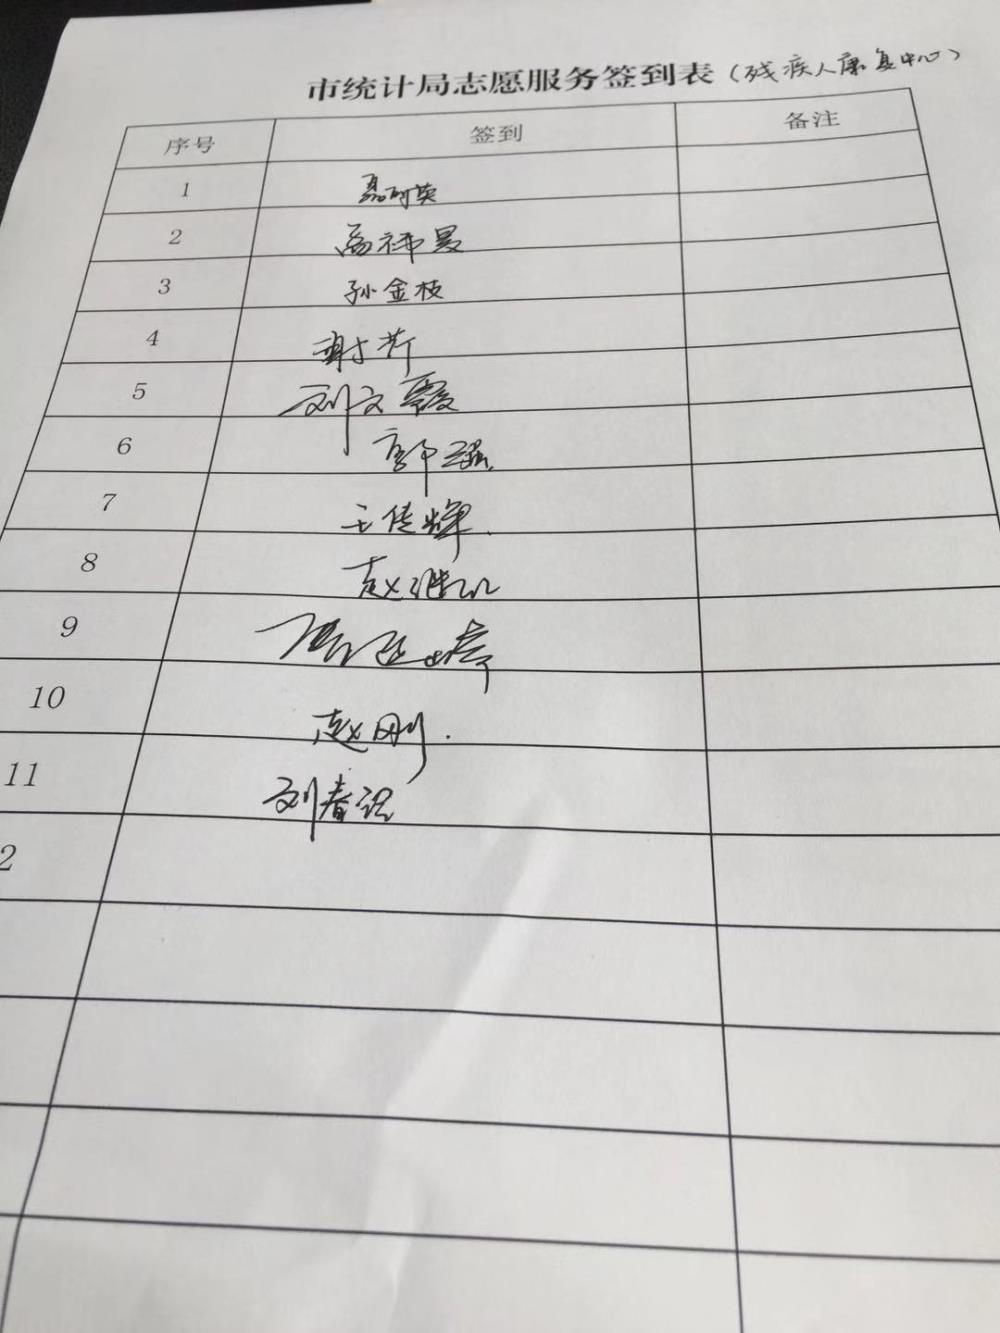 市统计局志愿服务签到表(残疾人康复中心)
序号 签到 备注
1
2
3 孙金枝
4 谢芳
5 刘文霞
6 郭
7 王传辉
8 赵继
9
10 赵刚.
11 刘春
2